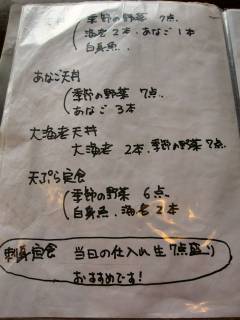 天丼
季節の野菜 7点
海老 2本、あなご 1本
白身魚、
あなご天丼
季節の野菜 7点
あなご 3本
大海老天丼
大海老 2本、季節の野菜 7点
天ぷら定食
季節の野菜 6点
白身魚、海老 2本
刺身定食 当日の仕入れ生 7点盛り
おすすめです!